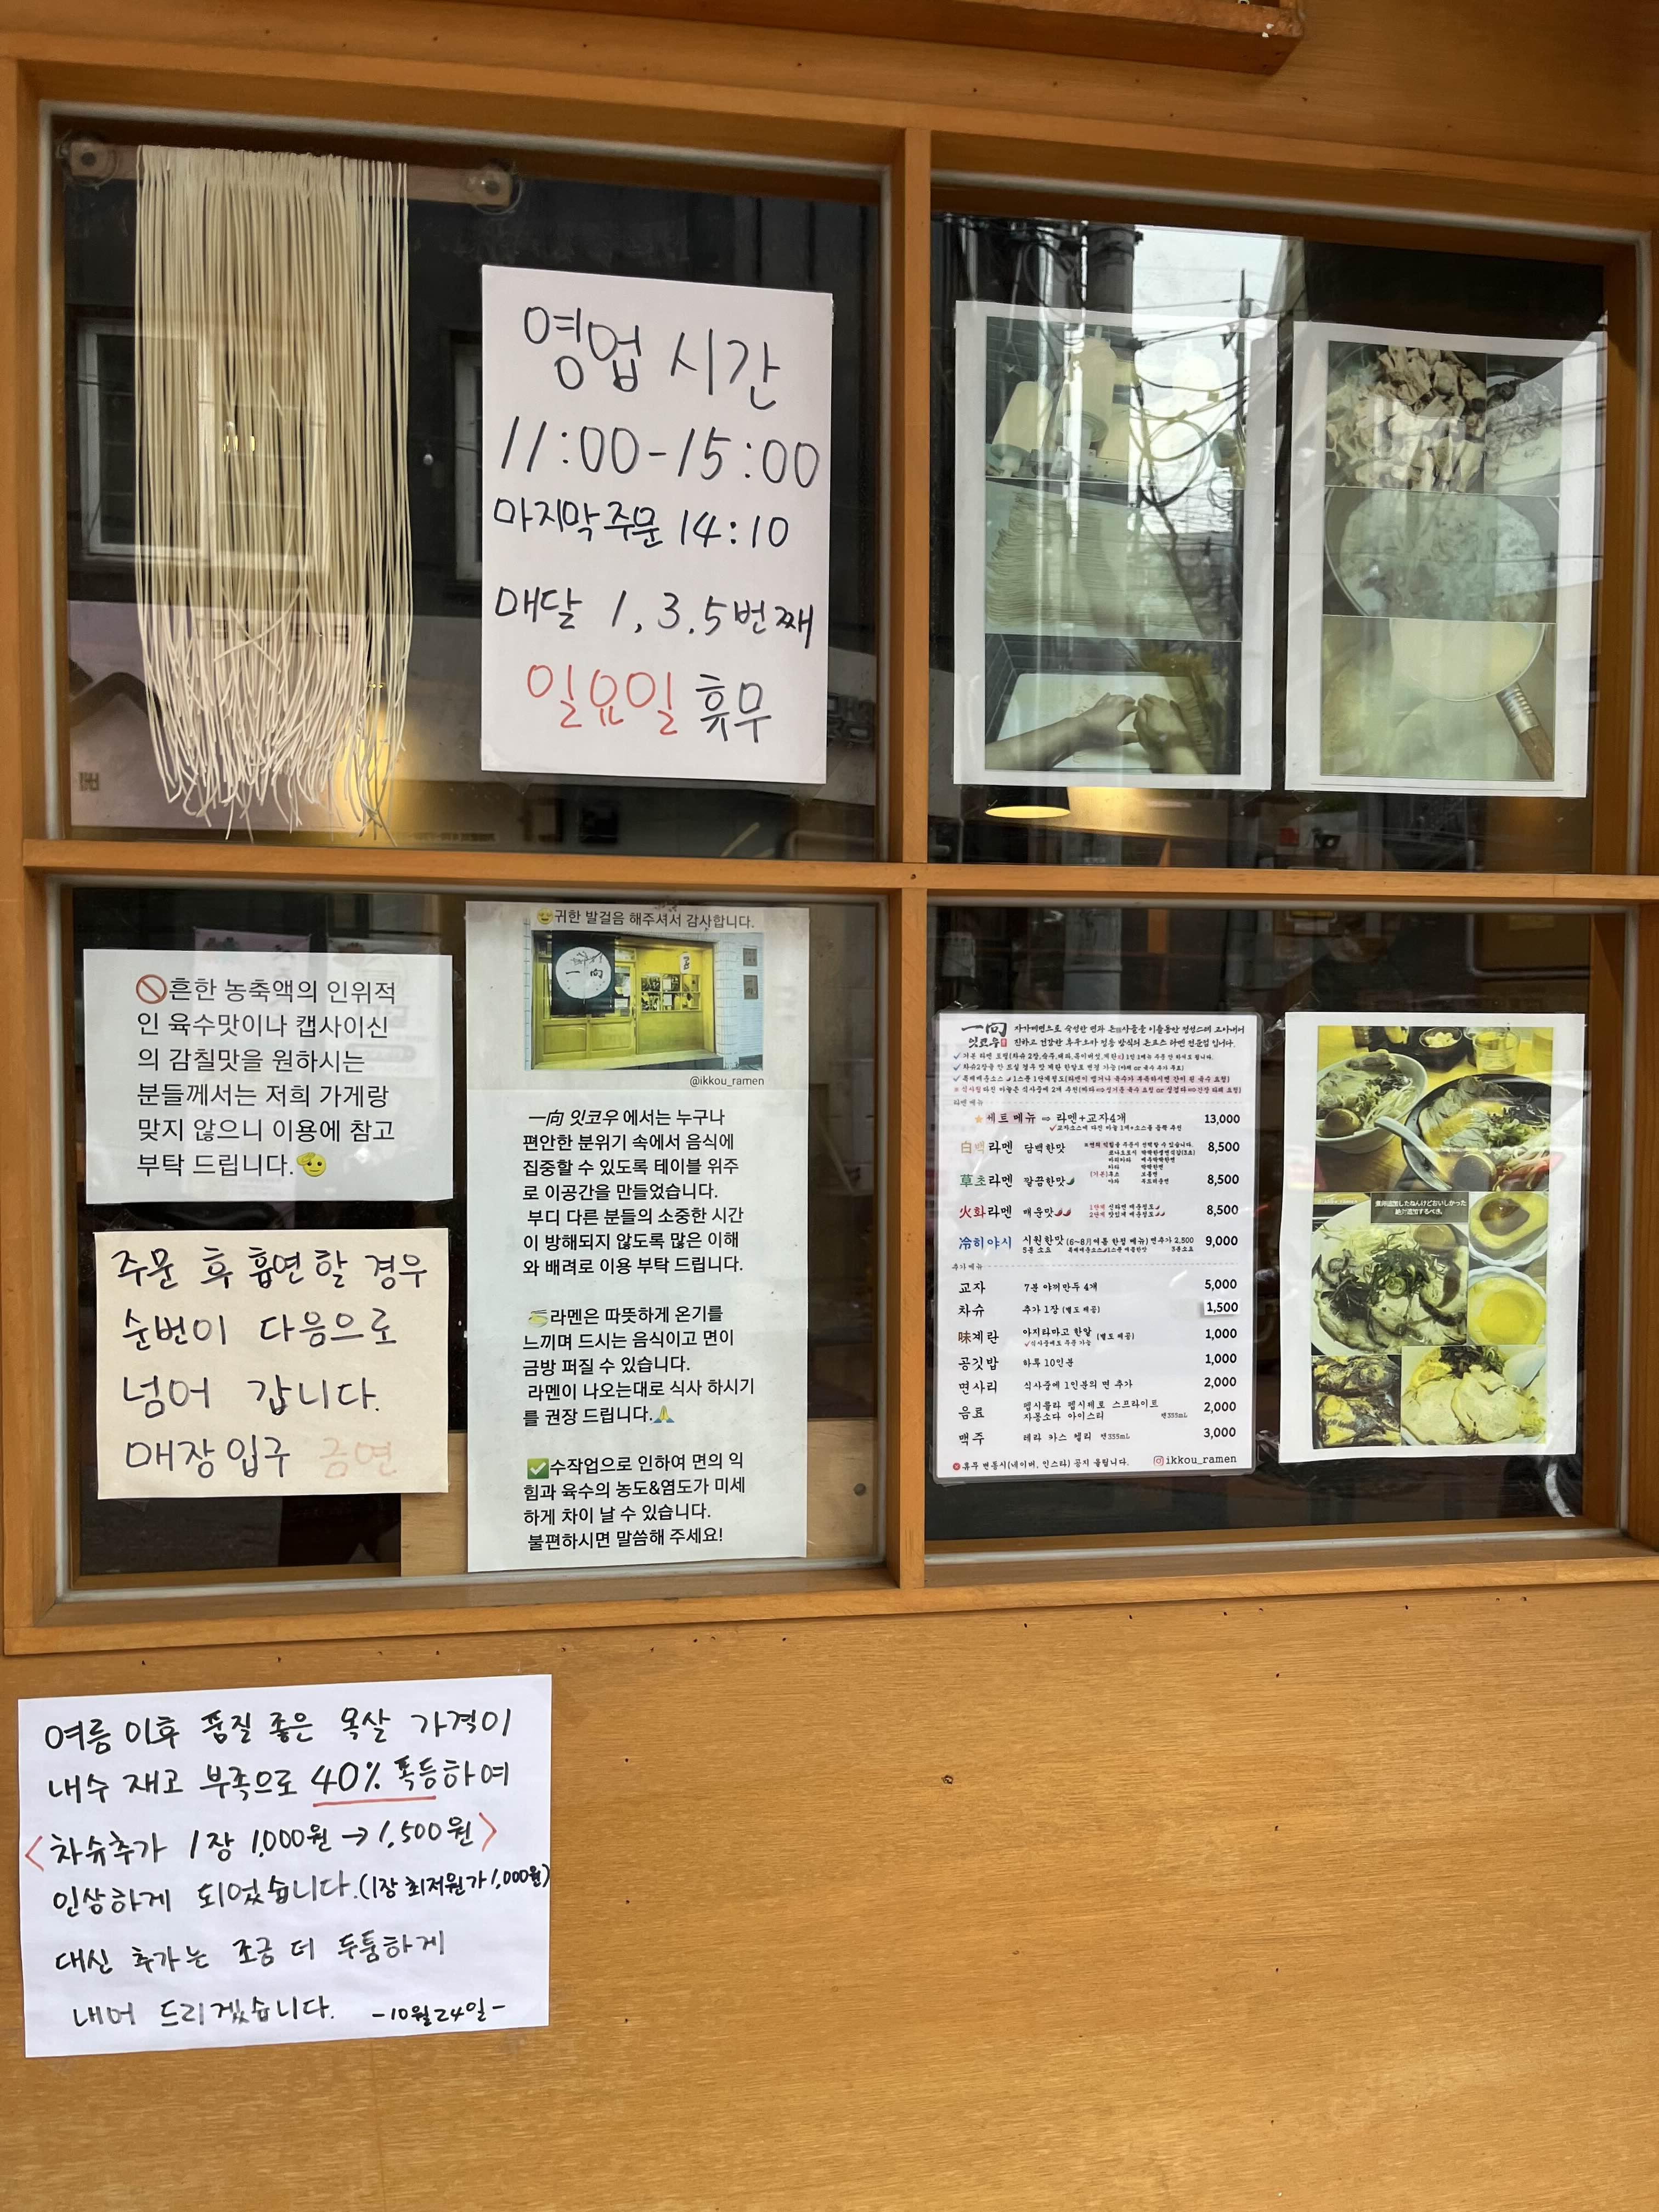 영업 시간
11:00-15:00
마지막 주문 14:10
매달 1, 3, 5번째
일요일 휴무
🚫흔한 농축액의 인위적
인 육수맛이나 캡사이신
의 감칠맛을 원하시는
분들께서는 저희 가게랑
맞지 않으니 이용에 참고
부탁 드립니다.🫡
주문 후 흡연 할 경우
순번이 다음으로
넘어 갑니다.
매장입구 금연
귀한 발걸음 해주셔서 감사합니다.
一向
@ikkou_ramen
一向 잇코우 에서는 누구나
편안한 분위기 속에서 음식에
집중할 수 있도록 테이블 위주
로 이공간을 만들었습니다.
부디 다른 분들의 소중한 시간
이 방해되지 않도록 많은 이해
와 배려로 이용 부탁 드립니다.
🍜라멘은 따뜻하게 온기를
느끼며 드시는 음식이고 면이
금방 퍼질 수 있습니다.
라멘이 나오는대로 식사 하시기
를 권장 드립니다.🙏
✅수작업으로 인하여 면의 익
힘과 육수의 농도&염도가 미세
하게 차이 날 수 있습니다.
불편하시면 말씀해 주세요!
一向
잇코우
라멘 메뉴
세트 메뉴 ⇨ 라멘+교자4개 13,000
白백라멘 담백한맛 8,500
草초라멘 깔끔한맛 8,500
火화라멘 매운맛 8,500
冷히야시 시원한맛 (6~8月여름 한정 메뉴) 면추가 2,500 9,000
추가 메뉴
교자 7분 야끼만두 4개 5,000
차슈 추가 1장 (별도 제공) 1,500
味계란 아지타마고 한알 (별도 제공) 1,000
✓식사중에도 주문 가능
공깃밥 하루 10인분 1,000
면사리 식사중에 1인분의 면 추가 2,000
음료 펩시콜라 펩시제로 스프라이트 2,000
자몽소다 아이스티 캔355mL
맥주 테라 카스 켈리 캔355mL 3,000
휴무 변동시(네이버, 인스타) 공지 올립니다. ikkou_ramen
여름 이후 품질 좋은 목살 가격이
내수 재고 부족으로 40% 폭등하여
<차슈추가 1장 1,000원→1,500원>
인상하게 되었습니다.(1장 최저원가 1,000원)
대신 추가는 조금 더 두툼하게
내어 드리겠습니다. -10월24일-